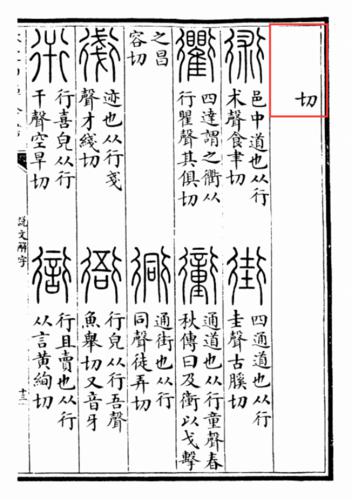 切
術
邑中道也从行
术聲食聿切
街
四通道也从行
圭聲古膎切
衢
四達謂之衢从
行瞿聲其俱切
𧘂
通道也从行童聲春
秋傳曰及衝以戈擊
之昌
容切
衕
通街也从行
同聲徒弄切
𧗸
迹也从行戔
聲才綫切
衙
行皃从行吾聲
魚舉切又音牙
衎
行喜皃从行
干聲空旱切
𧗳
行且賣也从行
从言黃絢切
說文解字
十三